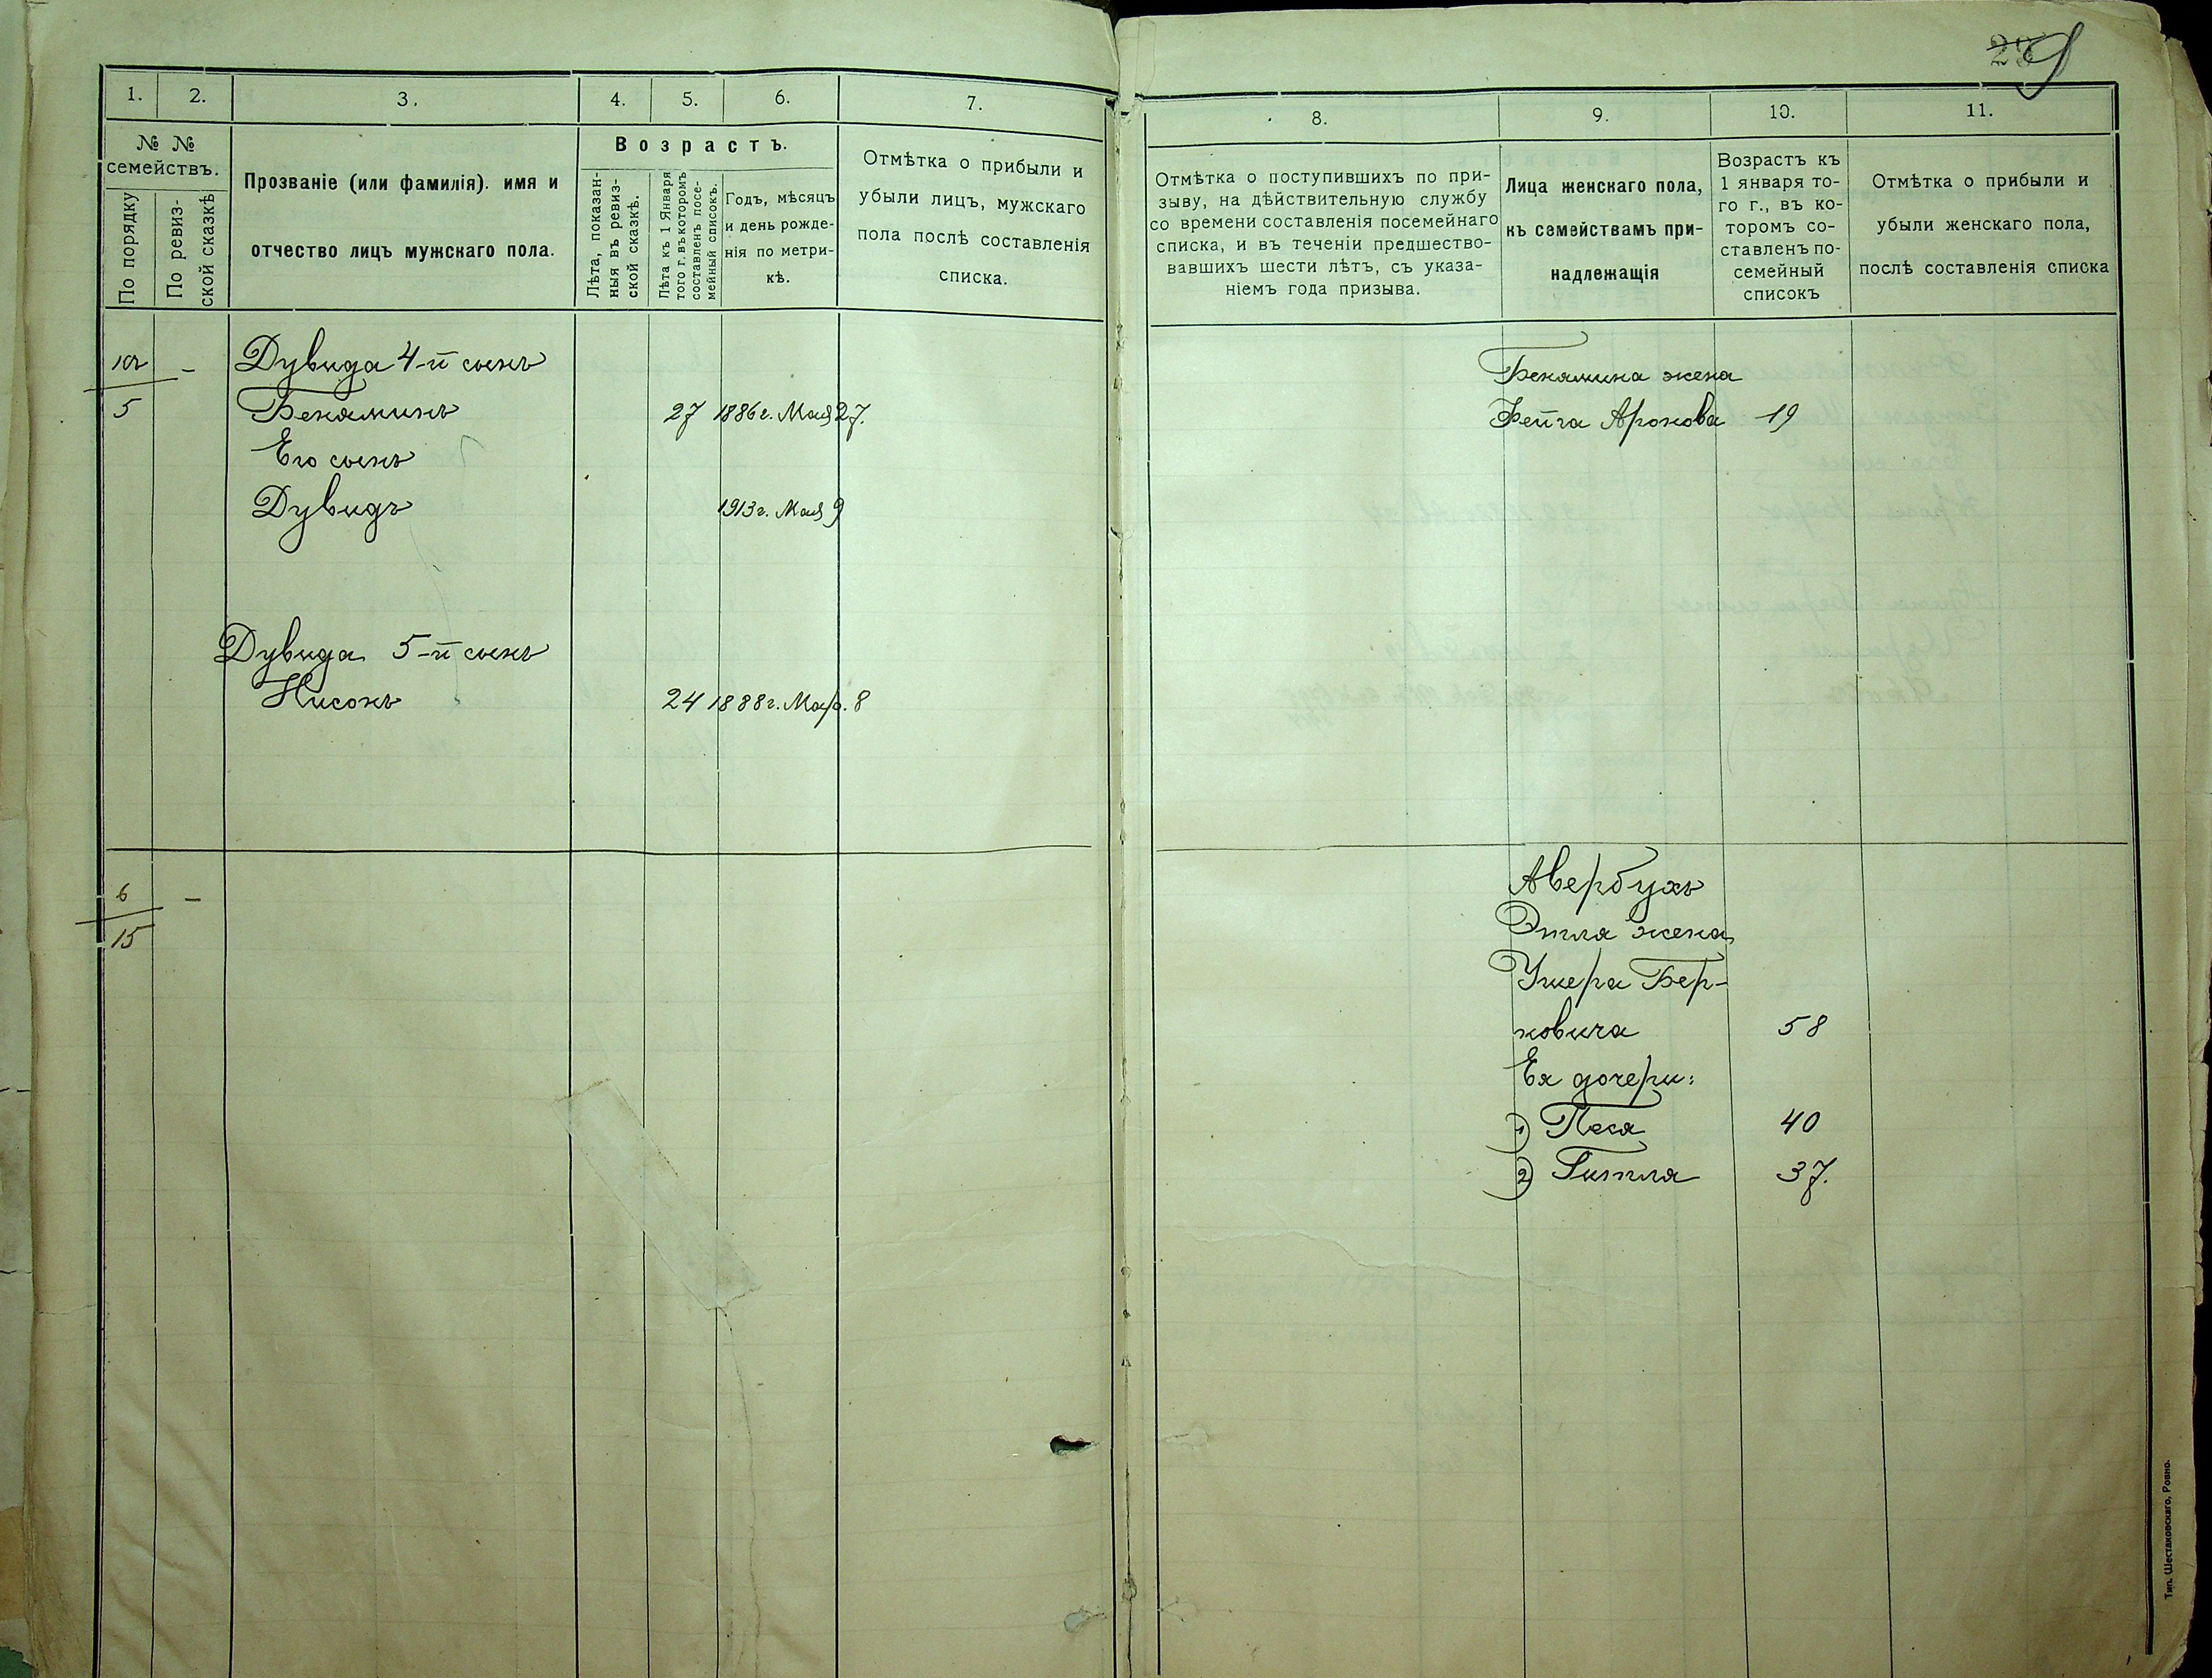 1.
2.
3.
4.
5.
6.
7.
№ №
семействъ.
По порядку
По ревиз-
ской сказкѣ
Прозваніе (или фамилія). имя и
отчество лицъ мужскаго пола.
Возрастъ.
Лѣта, показан-
ныя въ ревиз-
ской сказкѣ.
Лѣта къ 1 Января
того г. въ которомъ
составленъ посе-
мейный списокъ.
Годъ, мѣсяцъ
и день рожде-
нія по метри-
кѣ.
Отмѣтка о прибыли и
убыли лицъ, мужскаго
пола послѣ составленія
списка.
–
5
Дувида 4-й сынъ
Беняминъ 27 1886 г. Мая 27.
Его сынъ
Дувидъ 1913 г. Мая 9
Дувида 5-й сынъ
Нисонъ 24 1888 г. Мар. 8
6 –
15
8.
9.
10.
11.
Отмѣтка о поступившихъ по при-
зыву, на дѣйствительную службу
со времени составленія посемейнаго
списка, и въ теченіи предшество-
вавшихъ шести лѣтъ, съ указа-
ніемъ года призыва.
Лица женскаго пола,
къ семействамъ при-
надлежащія
Возрастъ къ
1 января то-
го г., въ ко-
торомъ со-
ставленъ по-
семейный
списокъ
Отмѣтка о прибыли и
убыли женскаго пола,
послѣ составленія списка
Бенямина жена
Фейга Аронова 19
Авербухъ
Этля жена
Ушера Бер-
ковича 58
Ея дочери:
1) Песя 40
2) Гитля 37.
Тип. Шестаковскаго, Ровно.